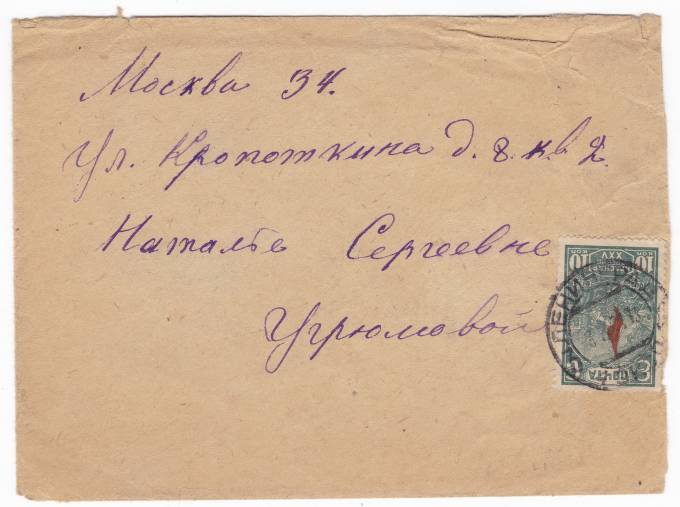 Москва 34.
Ул. Кропоткина д. 8. кв 2.
Наталье Сергеевне
Угрюмовой
10 КОП XXV 10 КОП
ПОЧТА
ЛЕНИНГРАД